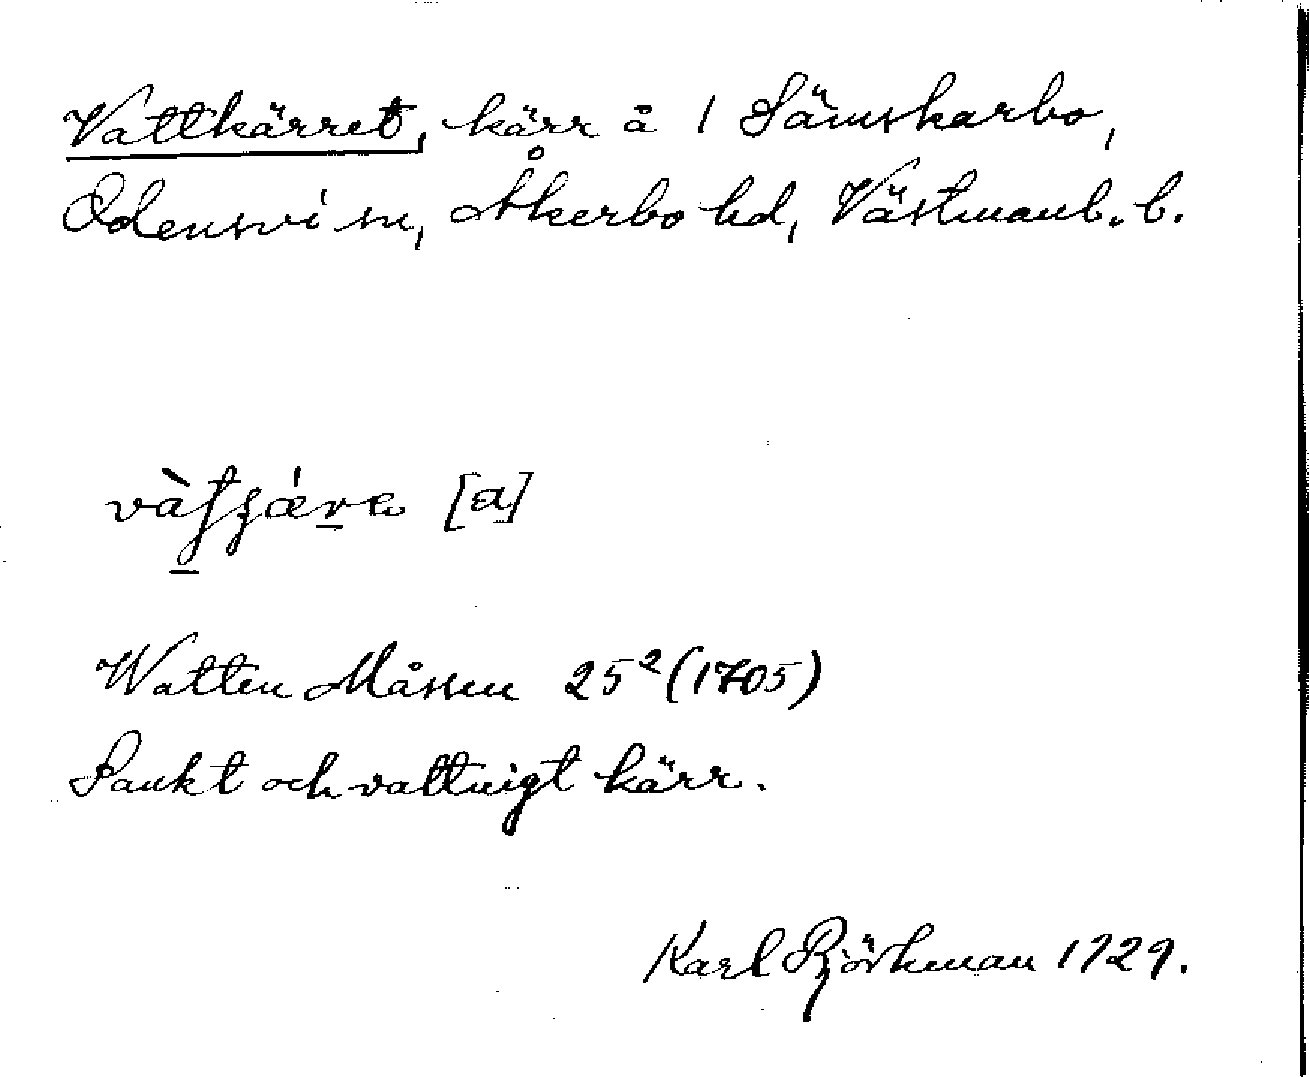 Vattkärret, kärr å 1 Sämskarbo,
Odensvi sn, Åkerbo hd, Västmanl. l.
[a]
Watten Måssen 25² (1705)
Sankt och vattnigt kärr.
Karl Björkman 1929.